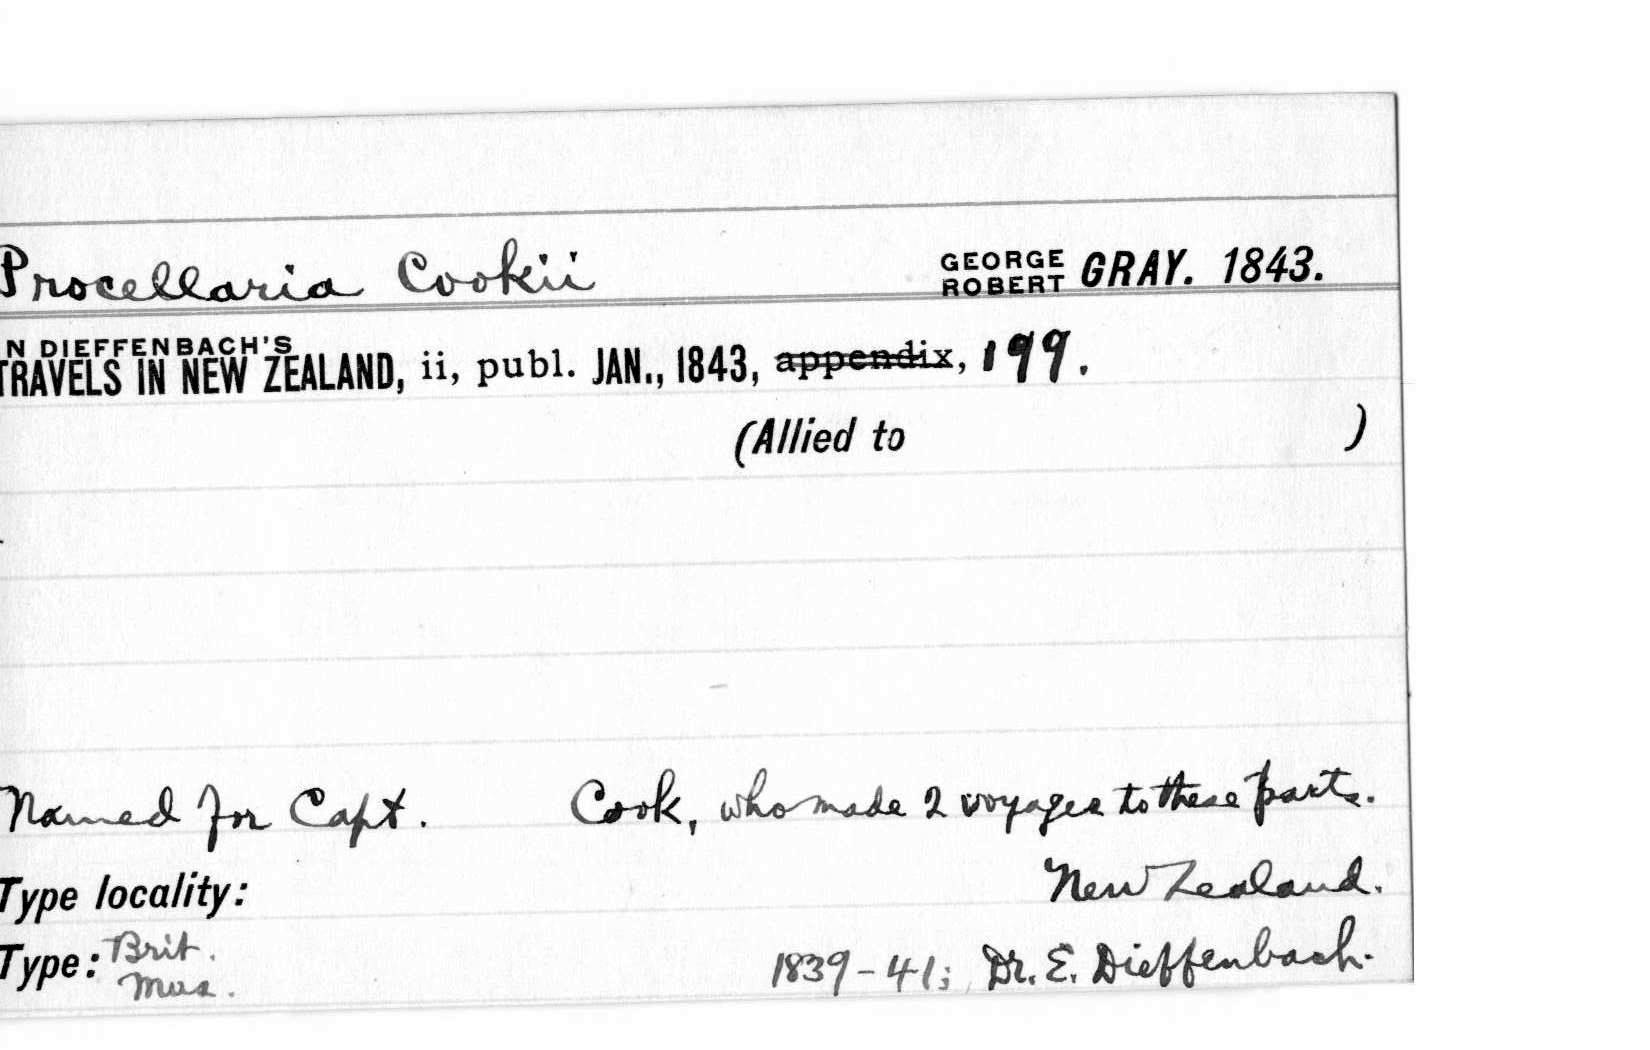 Procellaria Cookii GEORGE ROBERT GRAY. 1843.
N DIEFFENBACH'S
TRAVELS IN NEW ZEALAND, ii, publ. JAN., 1843, appendix, 199.
(Allied to )
Named for Capt. Cook, who made 2 voyages to these parts.
Type locality: New Zealand.
Type: Brit. Mus. 1839-41; Dr. E. Dieffenbach.